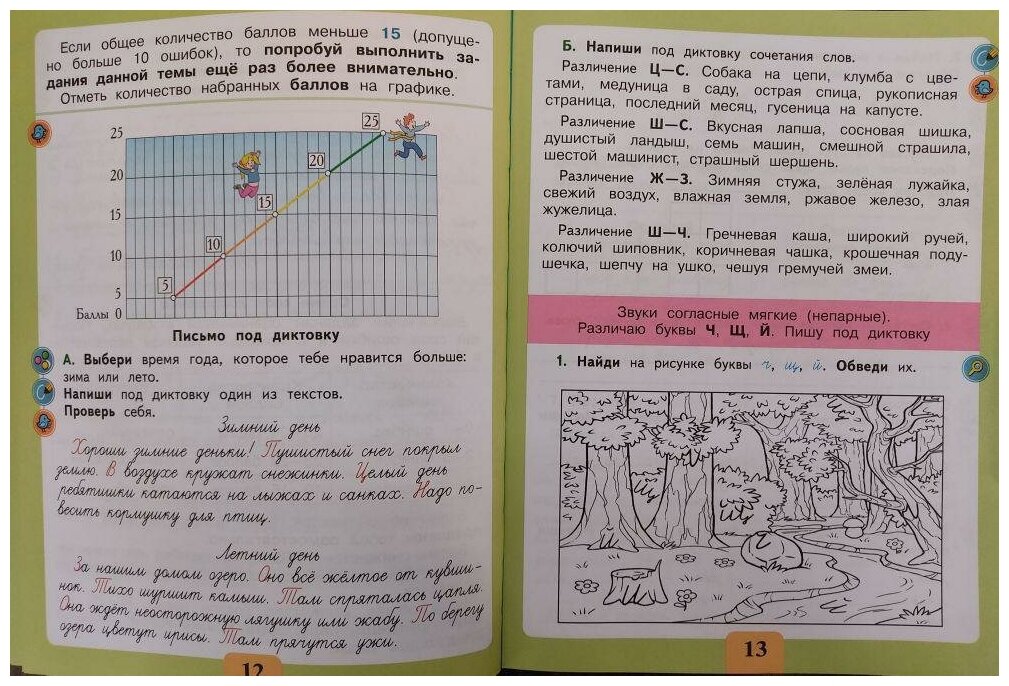 Если общее количество баллов меньше 15 (допуще-
но больше 10 ошибок), то попробуй выполнить за-
дания данной темы ещё раз более внимательно.
Отметь количество набранных баллов на графике.
25
20
15
10
5
Баллы 0
5
10
15
20
25
Письмо под диктовку
А. Выбери время года, которое тебе нравится больше:
зима или лето.
Напиши под диктовку один из текстов.
Проверь себя.
Зимний день
Хороши зимние деньки! Пушистый снег покрыл
землю. В воздухе кружат снежинки. Целый день
ребятишки катаются на лыжах и санках. Надо по-
весить кормушку для птиц.
Летний день
За нашим домом озеро. Оно всё жёлтое от кувши-
нок. Тихо шуршит камыш. Там спряталась цапля.
Она ждёт неосторожную лягушку или жабу. По берегу
озера цветут ирисы. Там прячутся ужи.
12
Б. Напиши под диктовку сочетания слов.
Различение Ц—С. Собака на цепи, клумба с цве-
тами, медуница в саду, острая спица, рукописная
страница, последний месяц, гусеница на капусте.
Различение Ш—С. Вкусная лапша, сосновая шишка,
душистый ландыш, семь машин, смешной страшила,
шестой машинист, страшный шершень.
Различение Ж—З. Зимняя стужа, зелёная лужайка,
свежий воздух, влажная земля, ржавое железо, злая
жужелица.
Различение Ш—Ч. Гречневая каша, широкий ручей,
колючий шиповник, коричневая чашка, крошечная поду-
шечка, шепчу на ушко, чешуя гремучей змеи.
Звуки согласные мягкие (непарные).
Различаю буквы Ч, Щ, Й. Пишу под диктовку
1. Найди на рисунке буквы ч, щ, й. Обведи их.
13